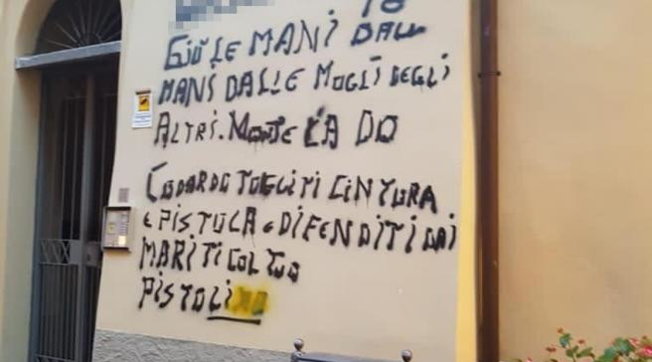 GIÙ LE MANI DALL
MANI DALLE MOGLI DEGLI
ALTRI. MONTE CA DO
CODARDO TOGLITI CINTURA
E PISTOLA E DIFENDITI DAI
MARITI COL TUO
PISTOLINO